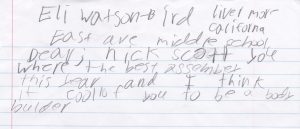 Eli Watson-Bird liver more
californa
East ave middle school
Dear, nick scott you
where the best assember
this year and I think
it cool of you to be a body
builder